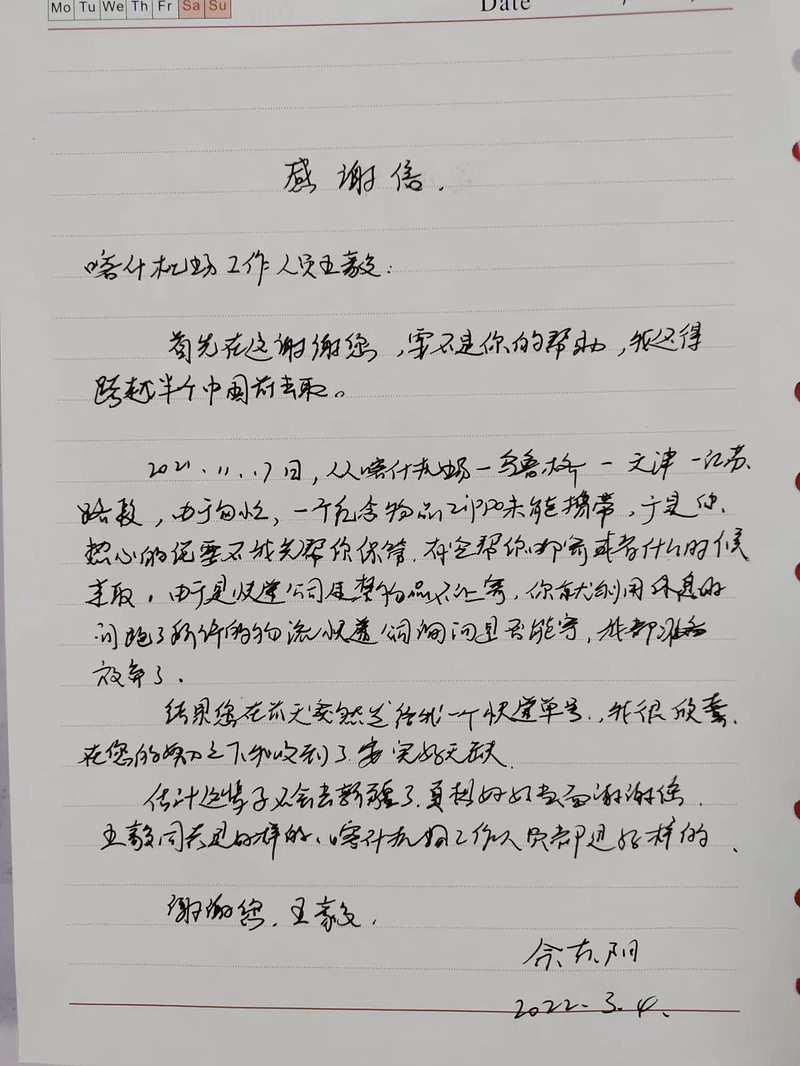 Mo Tu We Th Fr Sa Su
Date
感谢信.
喀什机场工作人员王豪:
首先在这谢谢您,要不是你的帮助,我还得
跨越半个中国前去取。
2021.11.17日,从喀什机场-乌鲁木齐-天津-江苏
路段,由于,一个包含物品Zippo未能携带,于是你
热心的我先帮你保管,有空帮你邮寄或者什么时候
来取,由于是快递公司违禁物品不让寄,你就利用休息时
间跑了所有的物流快递公司询问是否能寄,我都准备
放弃了.
结果您在前天突然发给我一个快递单号.,我很欣喜.
在您的努力之下我收到了.完好无缺.
估计这辈子不会去新疆了,真想好好当面谢谢您.
王豪同志是好样的,喀什机场工作人员都是好样的.
谢谢您.王豪.
余东阳
2022.3.4.